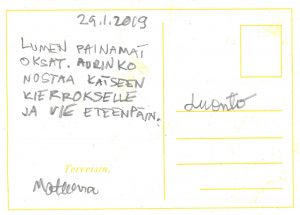 29.1.2019
LUMEN PAINAMAT
OKSAT. AURINKO
NOSTAA KATSEEN
KIERROKSELLE
JA VIE ETEENPÄIN.
Luonto
Terveisin,